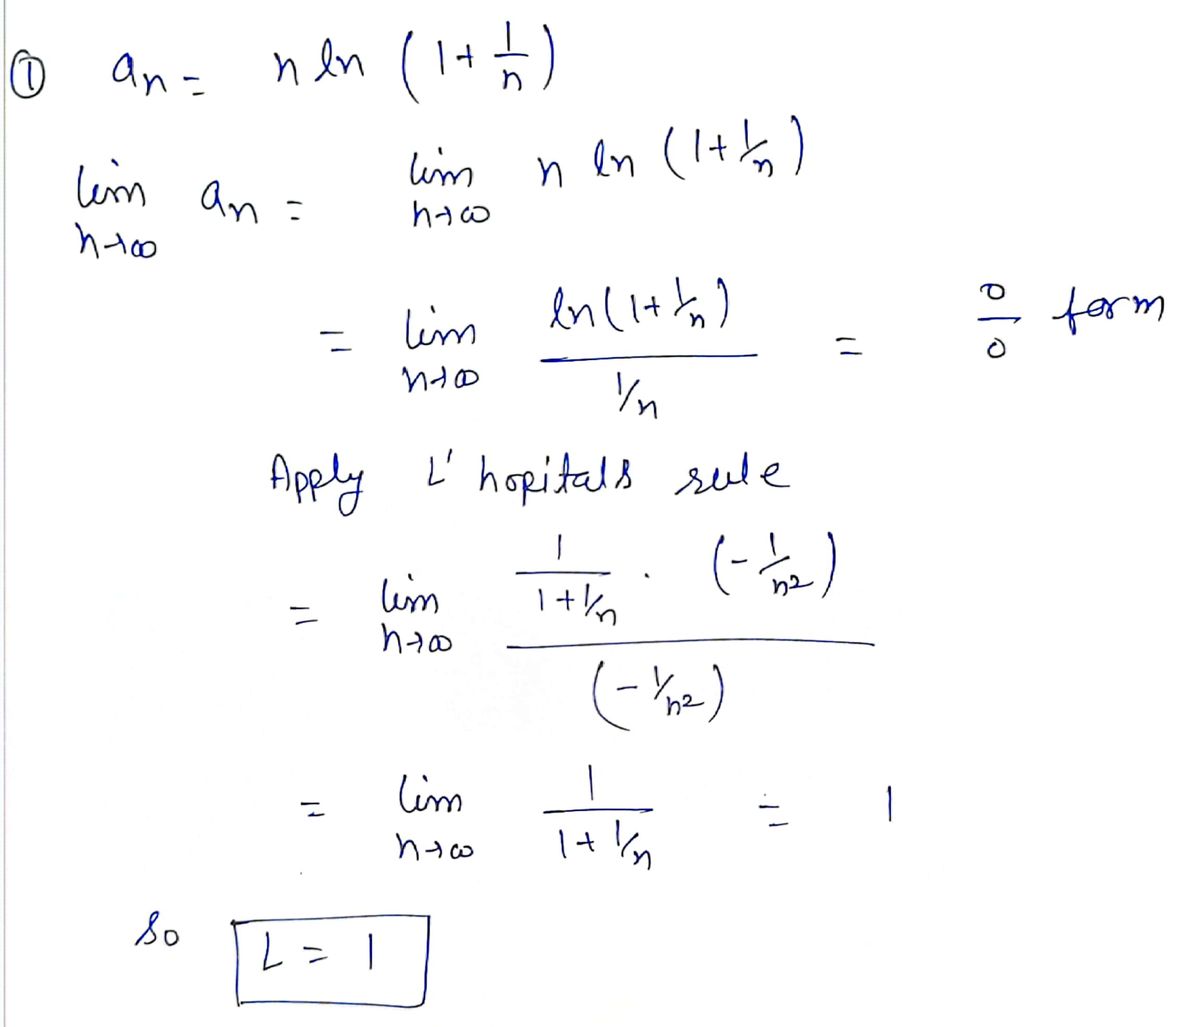 ① an = n ln (1 + 1/n)
lim n→∞ an = lim n→∞ n ln (1 + 1/n)
= lim n→∞ ln(1 + 1/n) / 1/n = 0/0 form
Apply L' hopitals rule
= lim n→∞ 1/(1 + 1/n) · (-1/n2) / (-1/n2)
= lim n→∞ 1/(1 + 1/n) = 1
So L = 1